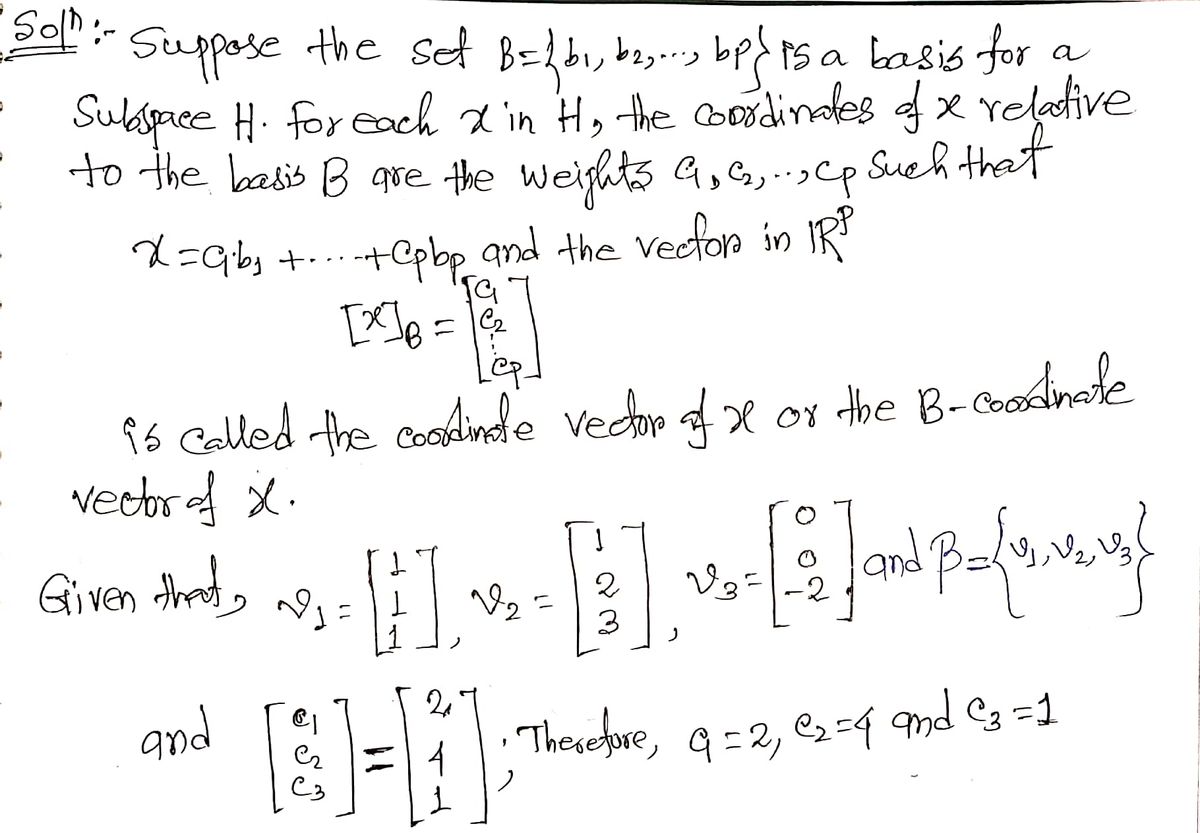 Solⁿ:- Suppose the set B={b₁, b₂,..., bp} is a basis for a
Subspace H. for each x in H, the coordinates of x relative
to the basis B are the weights c₁, c₂,..,cp Such that
x = c₁b₁ +....+ cpbp and the vector in ℝᴾ
[x]_B = [c₁ c₂ ⋮ cp]
is called the coordinate vector of x or the B-coordinate
vector of x.
Given that, v₁ = [1 1 1], v₂ = [1 2 3], v₃ = [0 0 -2] and B = {v₁, v₂, v₃}
and [c₁ c₂ c₃] = [2 4 1], Therefore, c₁ = 2, c₂ = 4 and c₃ = 1